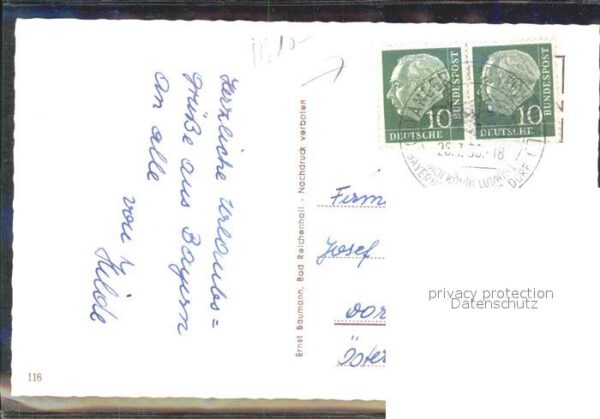 Herzliche Urlaubs=
Grüße aus Bayern
an alle
von
Hilde
Ernst Baumann, Bad Reichenhall - Nachdruck verboten
116
10 10
DEUTSCHE DEUTSCHE
BUNDESPOST BUNDESPOST
KÖNIG LUDWIG
DORF
Firm
Josef
Dor
Öster
privacy protection
Datenschutz